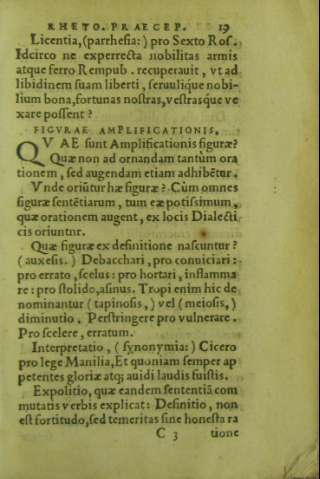 RHETO. PRAECEP. 19
Licentia,(parrhesia:) pro Sexto Ros.
Idcirco ne experrecta nobilitas armis
atque ferro Rempub. recuperauit, vt ad
libidinem suam liberti, seruulique nobi-
lium bona,fortunas nostras,vestrasque ve
xare possent?
FIGVRAE AMPLIFICATIONIS.
QVAE sunt Amplificationis figuræ?
Quæ non ad ornandam tantùm ora
tionem, sed augendam etiam adhibẽtur.
Vnde oriũtur hæ figuræ? Cùm omnes
figuræ sentẽtiarum, tum eæ potissimum,
quæ orationem augent, ex locis Dialecti
cis oriuntur.
Quæ figuræ ex definitione nascuntur?
(auxesis.) Debacchari, pro conuiciari:
pro errato, scelus: pro hortari, inflamma
re: pro stolido,asinus. Tropi enim hic de
nominantur (tapinosis,) vel (meiosis,)
diminutio. Perstringere pro vulnerare.
Pro scelere, erratum.
Interpretatio, (synonymia:) Cicero
pro lege Manilia,Et quoniam semper ap
petentes gloriæ atq; auidi laudis fuistis.
Expolitio, quæ eandem sententiã com
mutatis verbis explicat: Definitio, non
est fortitudo,sed temeritas sine honesta ra
C 3 tione